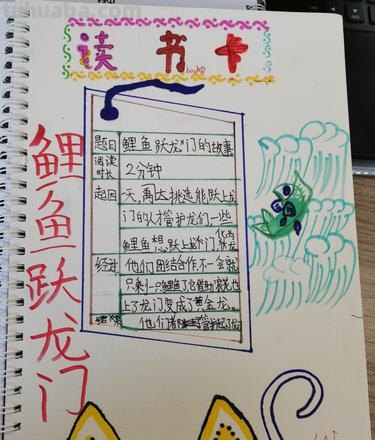 读书卡
book
鲤鱼跃龙门
题目 鲤鱼跃龙门的故事
阅读时长 2分钟
起因 一天,禹大挑选能跃上龙
门的人才管护龙们一些
鲤鱼想跃上龙门化为黄龙
经过 他们团结合作不一会就
只剩一只鲤鱼了它借助浪花也
上了龙门变成了黄金龙。
结果 他们